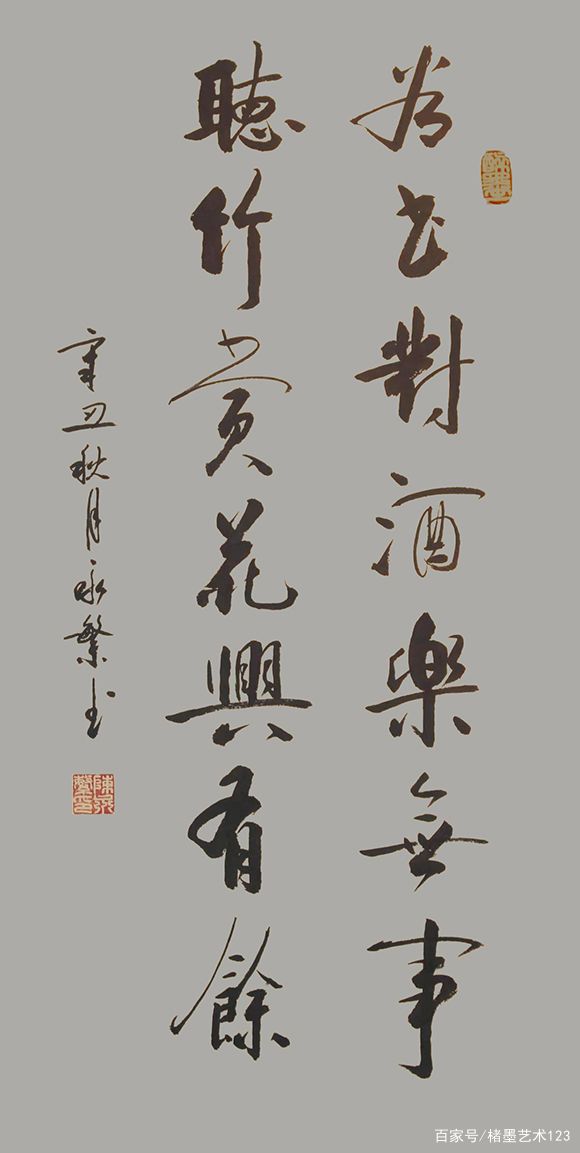 看書對酒樂無事
聽竹賞花興有餘
辛丑秋月永繁书
百家号/楮墨艺术123